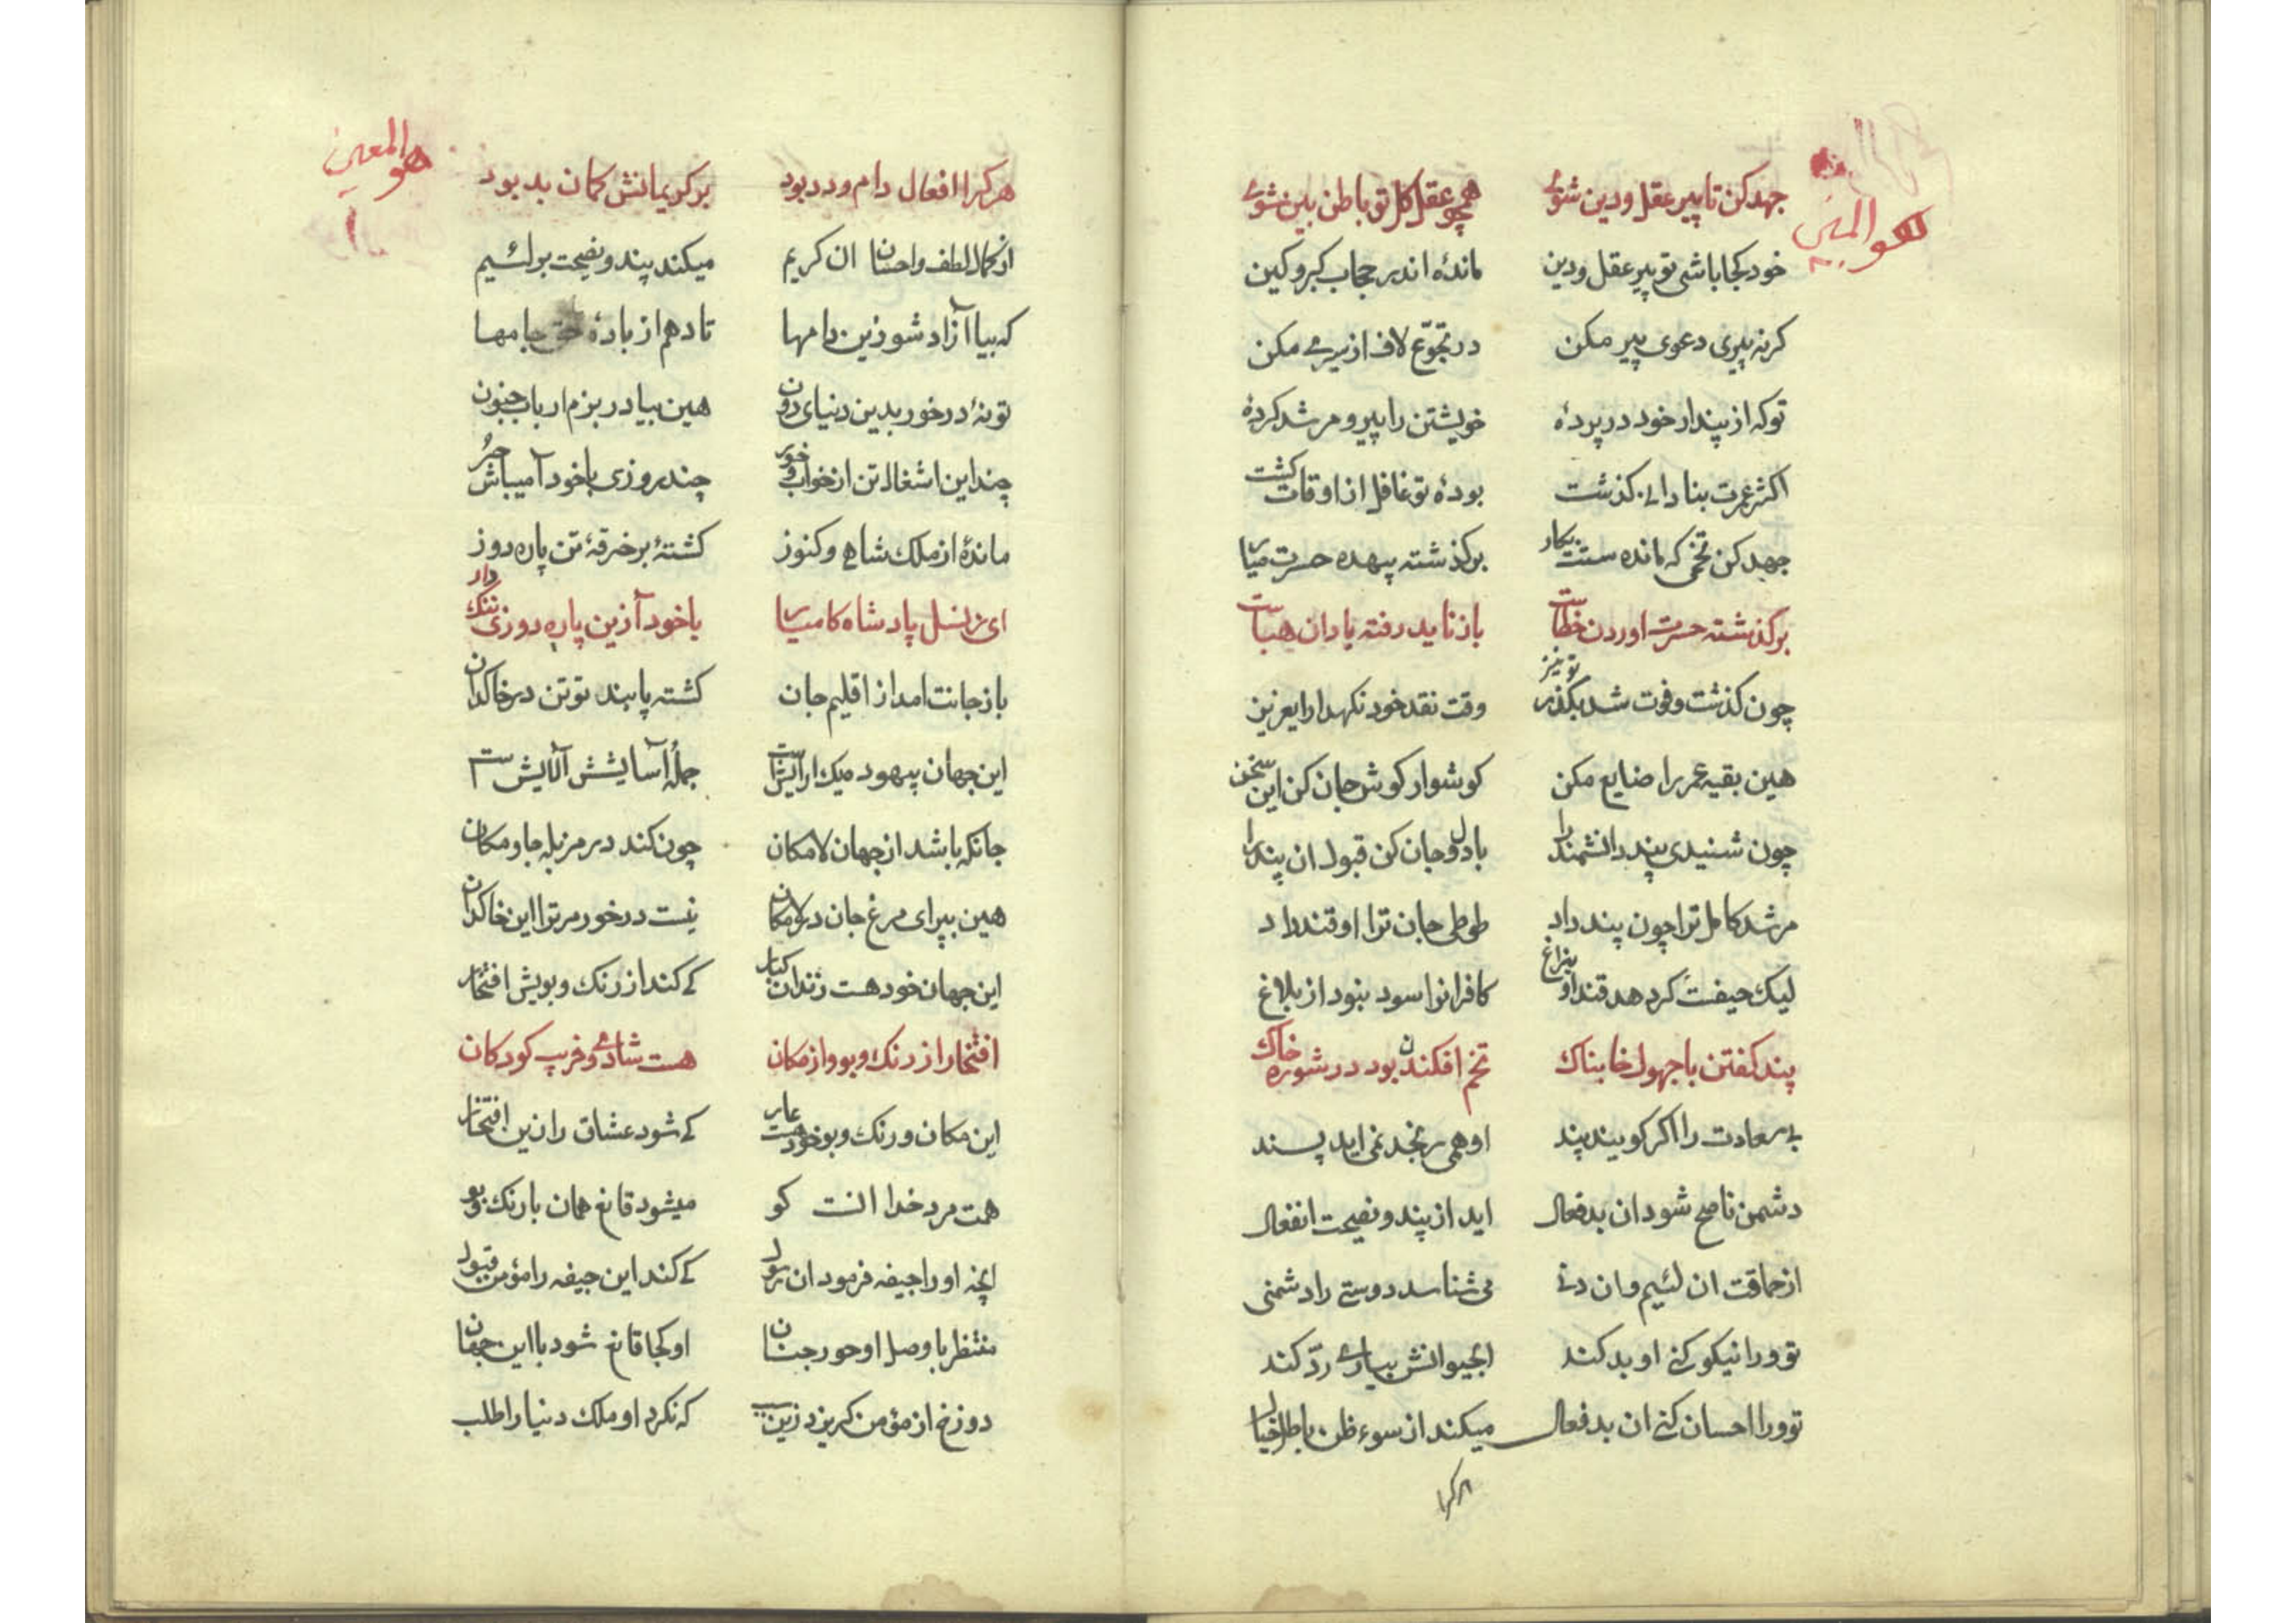 هو المبین
جهد کن تا پیر عقل و دین شوے همچو عقل کل تو باطن بین شوے
خود کجا باشی تو پیر عقل و دین ماندهٔ اندر حجاب کبر و کین
کر نه پیری دعوی پیر مکن در تجوّع لاف از سیرے مکن
تو که از پندار خود در پردهٔ خویشتن را پیر و مرشد کردهٔ
اکثر عمرت بنادانے کذشت بودهٔ تو غافل از اوقات کشت
جهد کن تخمی که مانده ست بکار بر کذشته بیهده حسرت میار
بر کذشته حسرت اوردن خطاست باز ناید رفته یاد ان هباست
چون کذشت و فوت شد بکذر تو نیز وقت نقد خود نکهدار ایعزیز
هین بقیه عمر را ضایع مکن کوشوار کوش جان کن این سخن
چون شنیدی پند دانشمند را با دل و جان کن قبول ان پند را
مرشد کامل ترا چون پند داد طوطی جان ترا او قند داد
لیک حیفت کرد هد قند او بزاغ کافرانرا سود نبود از بلاغ
پند کفتن با جهول خابناک تخم افکندن بود در شوره خاک
بے سعادت را اکر کویند پند او همی رنجد نمی اید پسند
دشمن ناصح شود ان بدفعال اید از پند و نصیحت انفعال
از حماقت ان لئیم و ان دنے می شناسد دوستے را دشمنی
تو ورا نیکو کنے او بد کند ابحیوانش بیارے ردّ کند
تو ورا احسان کنے ان بدفعال میکند از سوء ظن باطل خیال
هر کرا
هو المعین
هر کرا افعال دام و دد بود بر کریمانش کمان بد بود
از کمال لطف و احسان ان کریم میکند پند و نصیحت بر لئیم
که بیا آزاد شو زین دامها تا دهم از بادهٔ حق جامها
تو نهٔ در خور بدین دنیای دون هین بیا در بزم ارباب جنون
چند این اشغال تن از خواب و خور چند روزی با خود آ میباش حر
ماندهٔ از ملک شاهے و کنوز کشتهٔ بر خرقهٔ تن پاره دوز
ای ز نسل پادشاه کامیار با خود آ زین پاره دوزی ننک دار
باز جانت امد از اقلیم جان کشته پابند تو تن در خاکدان
این جهان بیهود میک ارایش است جملهٔ آسایشش آلایش است
جانکه باشد از جهان لامکان چون کند در مزبله جا و مکان
هین بپر ای مرغ جان در لامکان نیست در خور مر ترا این خاکدان
این جهان خود هست زندان کبار کے کند از رنک و بویش افتخار
افتخار از رنک و بو و از مکان هست شادے و فریب کودکان
این مکان و رنک و بو خود هست عار کے شود عشاق را زین افتخار
همت مرد خدا انست کو میشود قانع همان با رنک و بو
انچه او را جیفه فرمود ان رسول کے کند این جیفه را مؤمن قبول
منتظر با وصل او حور جنان او کجا قانع شود با این جهان
دوزخ از مؤمن کریزد زین سبب که نکرد او ملک دنیا را طلب